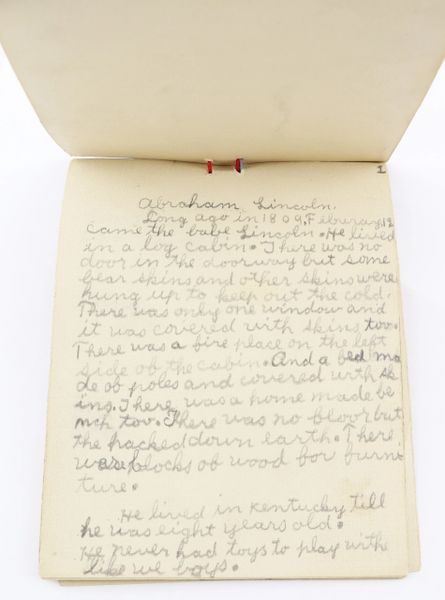 1
Abraham Lincoln.
Long ago in 1809, Fiburary 12
came the babe Lincoln. He lived
in a log cabin. There was no
door in the doorway but some
bear skins and other skins were
hung up to keep out the cold.
There was only one window and
it was covered with skins too.
There was a fire place on the left
side of the cabin. And a bed ma
de of poles and covered with sk
ins. There was a home made be
nch too. There was no floor but
the packed down earth. There
were blocks of wood for furni
ture.
He lived in Kentucky till
he was eight years old.
He never had toys to play with
like we boys.